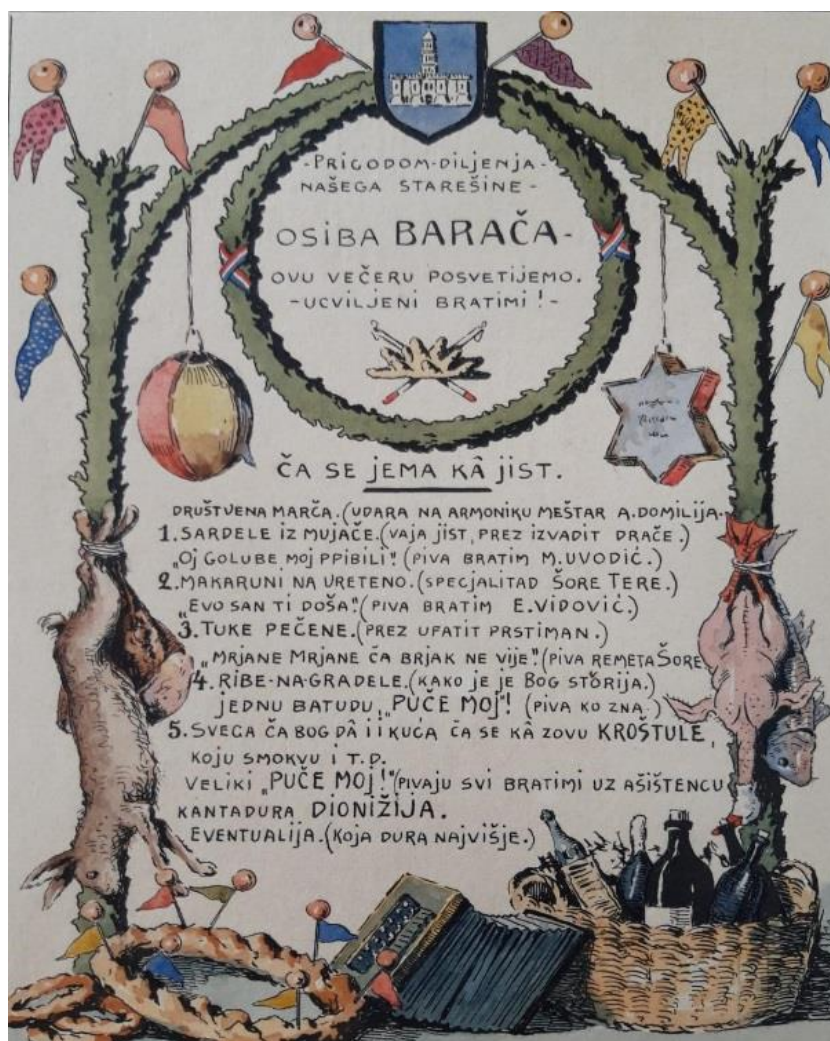 -PRIGODOM-DILJENJA-
NAŠEGA STAREŠINE-
OSIBA BARAČA-
OVU VEČERU POSVETIJEMO.
-UCVILJENI BRATIMI!-
ČA SE JEMA KÂ JIST.
DRUŠTVENA MARČA.(UDARA NA ARMONIKU MEŠTAR A.DOMILIJA.
1.SARDELE IZ MUJAČE.(VAJA JIST, PREZ IZVADIT DRAČE.)
„OJ GOLUBE MOJ PPIBILI“!(PIVA BRATIM M.UVODIĆ.)
2.MAKARUNI NA URETENO.(SPECJALITAD ŠORE TERE.)
„EVO SAN TI DOŠA“.(PIVA BRATIM E.VIDOVIĆ.)
3.TUKE PEČENE.(PREZ UFATIT PRSTIMAN.)
„MRJANE MRJANE ČA BRJAK NE VIJE“.(PIVA REMETA ŠORE
4.RIBE-NA-GRADELE.(KAKO JE JE BOG STORIJA.)
JEDNU BATUDU „PUČE MOJ“! (PIVA KO ZNA.)
5.SVEGA ČA BOG DÂ I I KUĆA ČA SE KÂ ZOVU KROŠTULE,
KOJU SMOKVU I T.D.
VELIKI „PUČE MOJ!“(PIVAJU SVI BRATIMI UZ AŠIŠTENCU
KANTADURA DIONIŽIJA.
EVENTUALIJA.(KOJA DURA NAJVIŠJE.)